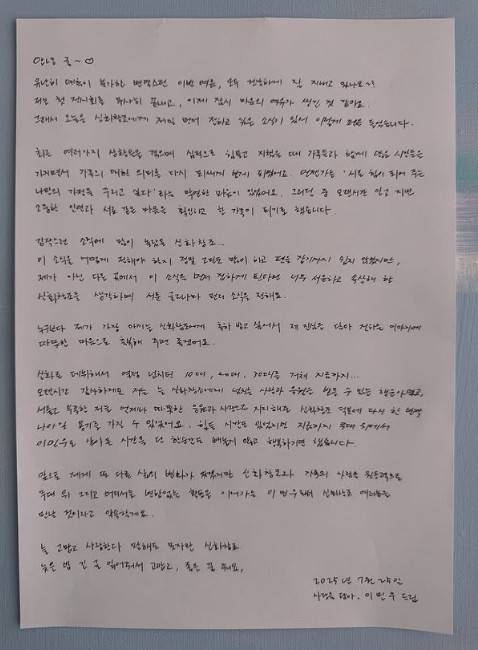 안녕 글~♡
유난히 더위가 변덕스런 이번 여름, 모두 건강하게 잘 지내고 있나요~?
저도 첫 전시회를 무사히 끝내고, 이제 잠시 마음의 여유가 생긴 것 같아요.
그래서 오늘은 신화창조에게 제일 먼저 전하고 싶은 소식이 있어 이렇게 펜을 들었습니다.
최근 여러가지 상황들을 겪으며 심적으로 힘들고 지쳤을 때 가족들과 함께 많은 시간들을
가지면서 가족의 대한 의미를 다시 되새기게 되었어요. 언젠가는 '서로 힘이 되어 주는
나만의 가정을 꾸리고 싶다' 라는 막연한 마음이 있었어요. 그러던 중 오랜시간 알고 지낸
소중한 인연과 서로 같은 마음을 확인하고 한 가족이 되기로 했습니다.
갑작스런 소식에 많이 놀랐을 신화창조..
이 소식을 어떻게 전해야 할지 정말 고민도 많이 하고 펜을 잡기까지 쉽지 않았지만,
제가 아닌 다른 곳에서 이 소식을 먼저 접하게 된다면 너무 서운하고 속상해 할
신화창조를 생각하며 서툰 글로나마 먼저 소식을 전해요.
누구보다 제가 가장 아끼는 신화창조에게 축하 받고 싶어서 제 진심을 담아 전하는 이야기에
따뜻한 마음으로 축복해 주면 좋겠어요.
신화로 데뷔해서 열정 넘치던 10대, 20대, 30대를 거쳐 지금까지...
오랜시간 감사하게도 저는 늘 신화창조에게 넘치는 사랑과 응원을 받을 수 있는 행운아였고,
서툴고 부족한 저를 언제나 따뜻한 응원과 사랑으로 지지해준 신화창조 덕분에 다시 한 번 더
나아갈 용기를 가질 수 있었어요. 힘든 시간도 있었지만 지금까지 무대 위에서
이민우로 살아온 시간은 단 한순간도 빠짐이 없이 행복하기만 했습니다.
앞으로 제게 또 다른 삶의 변화가 찾아오지만 신화창조와 가족의 사랑을 원동력으로
무대 위 그리고 어디서든 변함없는 활동을 이어가는 이민우로서 신화로서 여러분을
만날 것이라고 약속할게요.
늘 고맙고 사랑한다 말해도 모자란 신화창조
늦은 밤 긴 글 읽어줘서 고맙고, 좋은 꿈 꿔요.
2025년 7월 25일
사랑을 담아. 이민우 드림